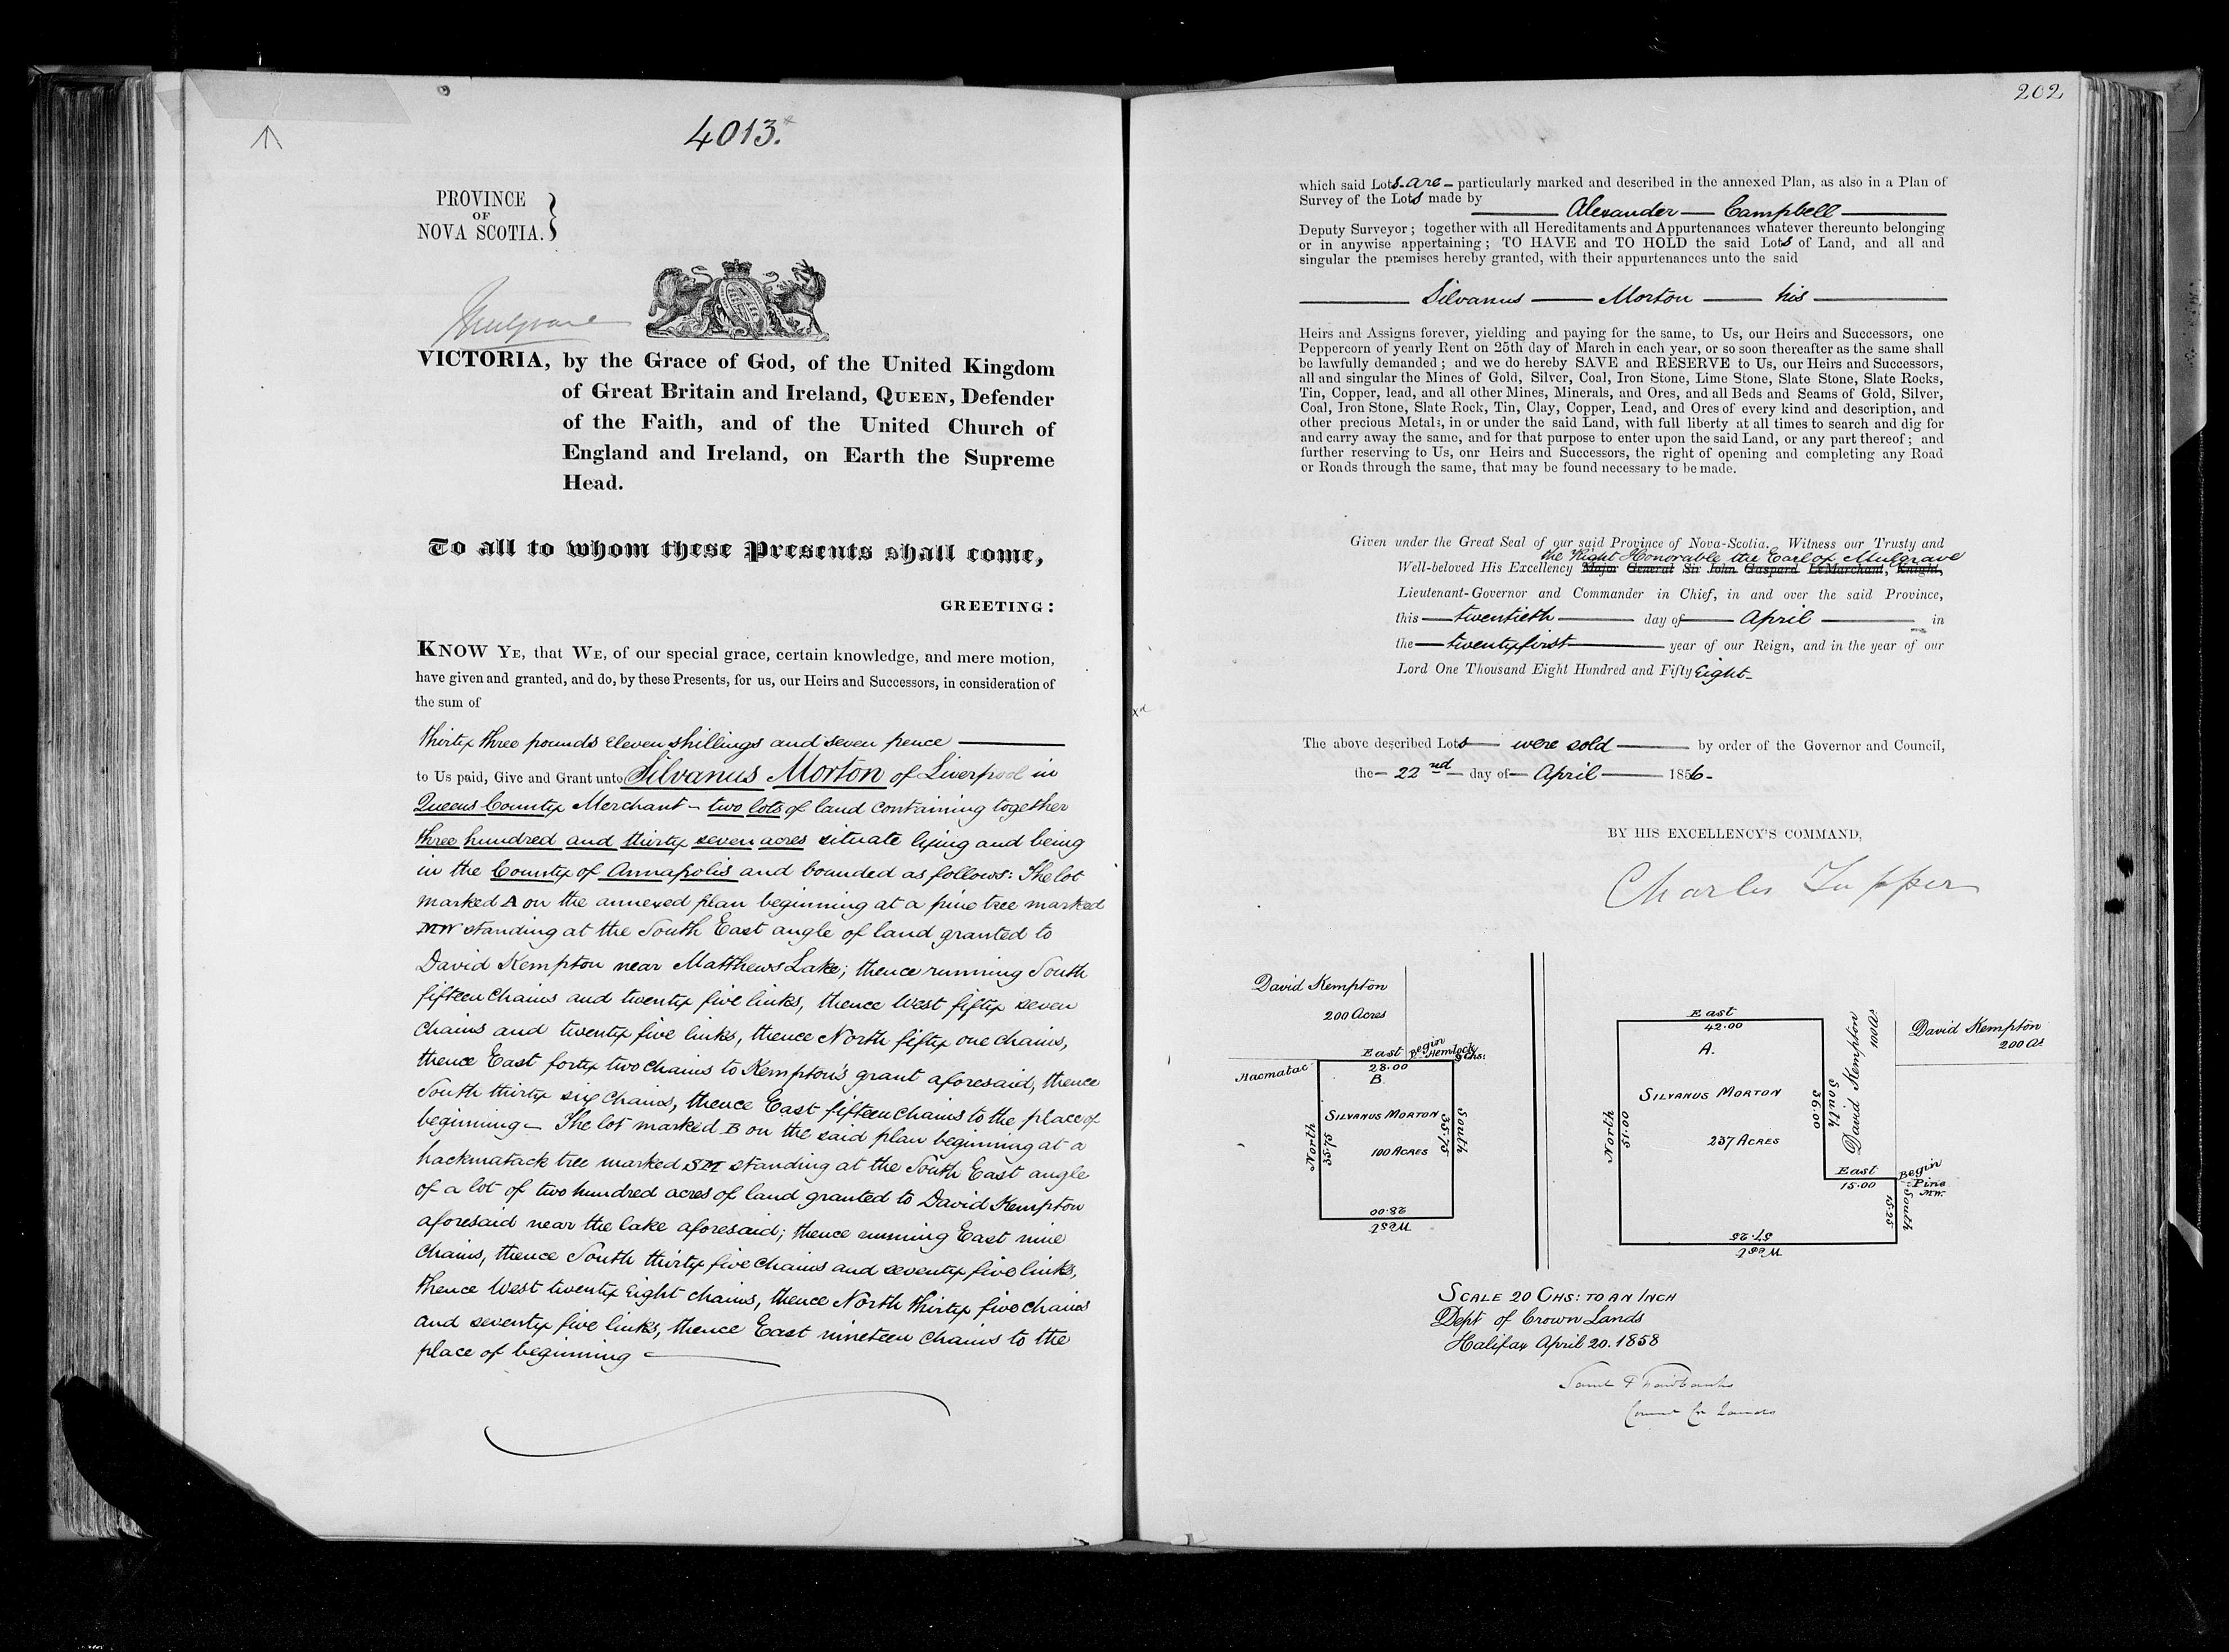 4013.
PROVINCE
OF
NOVA SCOTIA.
Mulgrave
VICTORIA, by the Grace of God, of the United Kingdom
of Great Britain and Ireland, QUEEN, Defender
of the Faith, and of the United Church of
England and Ireland, on Earth the Supreme
Head.
To all to whom these Presents shall come,
GREETING:
KNOW YE, that WE, of our special grace, certain knowledge, and mere motion,
have given and granted, and do, by these Presents, for us, our Heirs and Successors, in consideration of
the sum of
thirty three pounds eleven shillings and seven pence
to Us paid, Give and Grant unto Silvanus Morton of Liverpool in
Queens County Merchant - two lots of land containing together
three hundred and thirty seven acres situate lying and being
in the County of Annapolis and bounded as follows: The lot
marked A on the annexed plan beginning at a pine tree marked
MW standing at the South East angle of land granted to
David Kempton near Matthews Lake; thence running South
fifteen chains and twenty five links, thence West fifty seven
chains and twenty five links, thence North fifty one chains,
thence East forty two chains to Kempton's grant aforesaid, thence
South thirty six chains, thence East fifteen chains to the place of
beginning - The lot marked B on the said plan beginning at a
hackmatack tree marked SM standing at the South East angle
of a lot of two hundred acres of land granted to David Kempton
aforesaid near the lake aforesaid; thence running East nine
chains, thence South thirty five chains and seventy five links,
thence West twenty eight chains, thence North thirty five chains
and seventy five links, thence East nineteen chains to the
place of beginning -
202
which said Lots are particularly marked and described in the annexed Plan, as also in a Plan of
Survey of the Lots made by
Alexander Campbell
Deputy Surveyor; together with all Hereditaments and Appurtenances whatever thereunto belonging
or in anywise appertaining; TO HAVE and TO HOLD the said Lots of Land, and all and
singular the premises hereby granted, with their appurtenances unto the said
Silvanus Morton his
Heirs and Assigns forever, yielding and paying for the same, to Us, our Heirs and Successors, one
Peppercorn of yearly Rent on 25th day of March in each year, or so soon thereafter as the same shall
be lawfully demanded; and we do hereby SAVE and RESERVE to Us, our Heirs and Successors,
all and singular the Mines of Gold, Silver, Coal, Iron Stone, Lime Stone, Slate Stone, Slate Rocks,
Tin, Copper, lead, and all other Mines, Minerals, and Ores, and all Beds and Seams of Gold, Silver,
Coal, Iron Stone, Slate Rock, Tin, Clay, Copper, Lead, and Ores of every kind and description, and
other precious Metals, in or under the said Land, with full liberty at all times to search and dig for
and carry away the same, and for that purpose to enter upon the said Land, or any part thereof; and
further reserving to Us, onr Heirs and Successors, the right of opening and completing any Road
or Roads through the same, that may be found necessary to be made.
Given under the Great Seal of our said Province of Nova-Scotia. Witness our Trusty and
the Right Honorable the Earl of Mulgrave
Well-beloved His Excellency Major General Sir John Gaspard LeMarchant, Knight,
Lieutenant-Governor and Commander in Chief, in and over the said Province,
this twentieth day of April in
the twenty first year of our Reign, and in the year of our
Lord One Thousand Eight Hundred and Fifty Eight
The above described Lots were sold by order of the Governor and Council,
the 22nd day of April 1856
BY HIS EXCELLENCY'S COMMAND,
Charles Tupper
David Kempton
200 Acres
East
Begin
Hemlock
9 Chs:
Hacmatac
28.00
B.
SILVANUS MORTON
100 ACRES
North
35.75
South
35.75
28.00
West
East
42.00
A.
SILVANUS MORTON
237 ACRES
North
51.00
South
36.00
David Kempton
100 As
David Kempton
200 As
East
15.00
Begin
Pine
MW.
South
15.25
57.25
West
SCALE 20 CHS: TO AN INCH
Dept of Crown Lands
Halifax April 20. 1858
Saml P Fairbanks